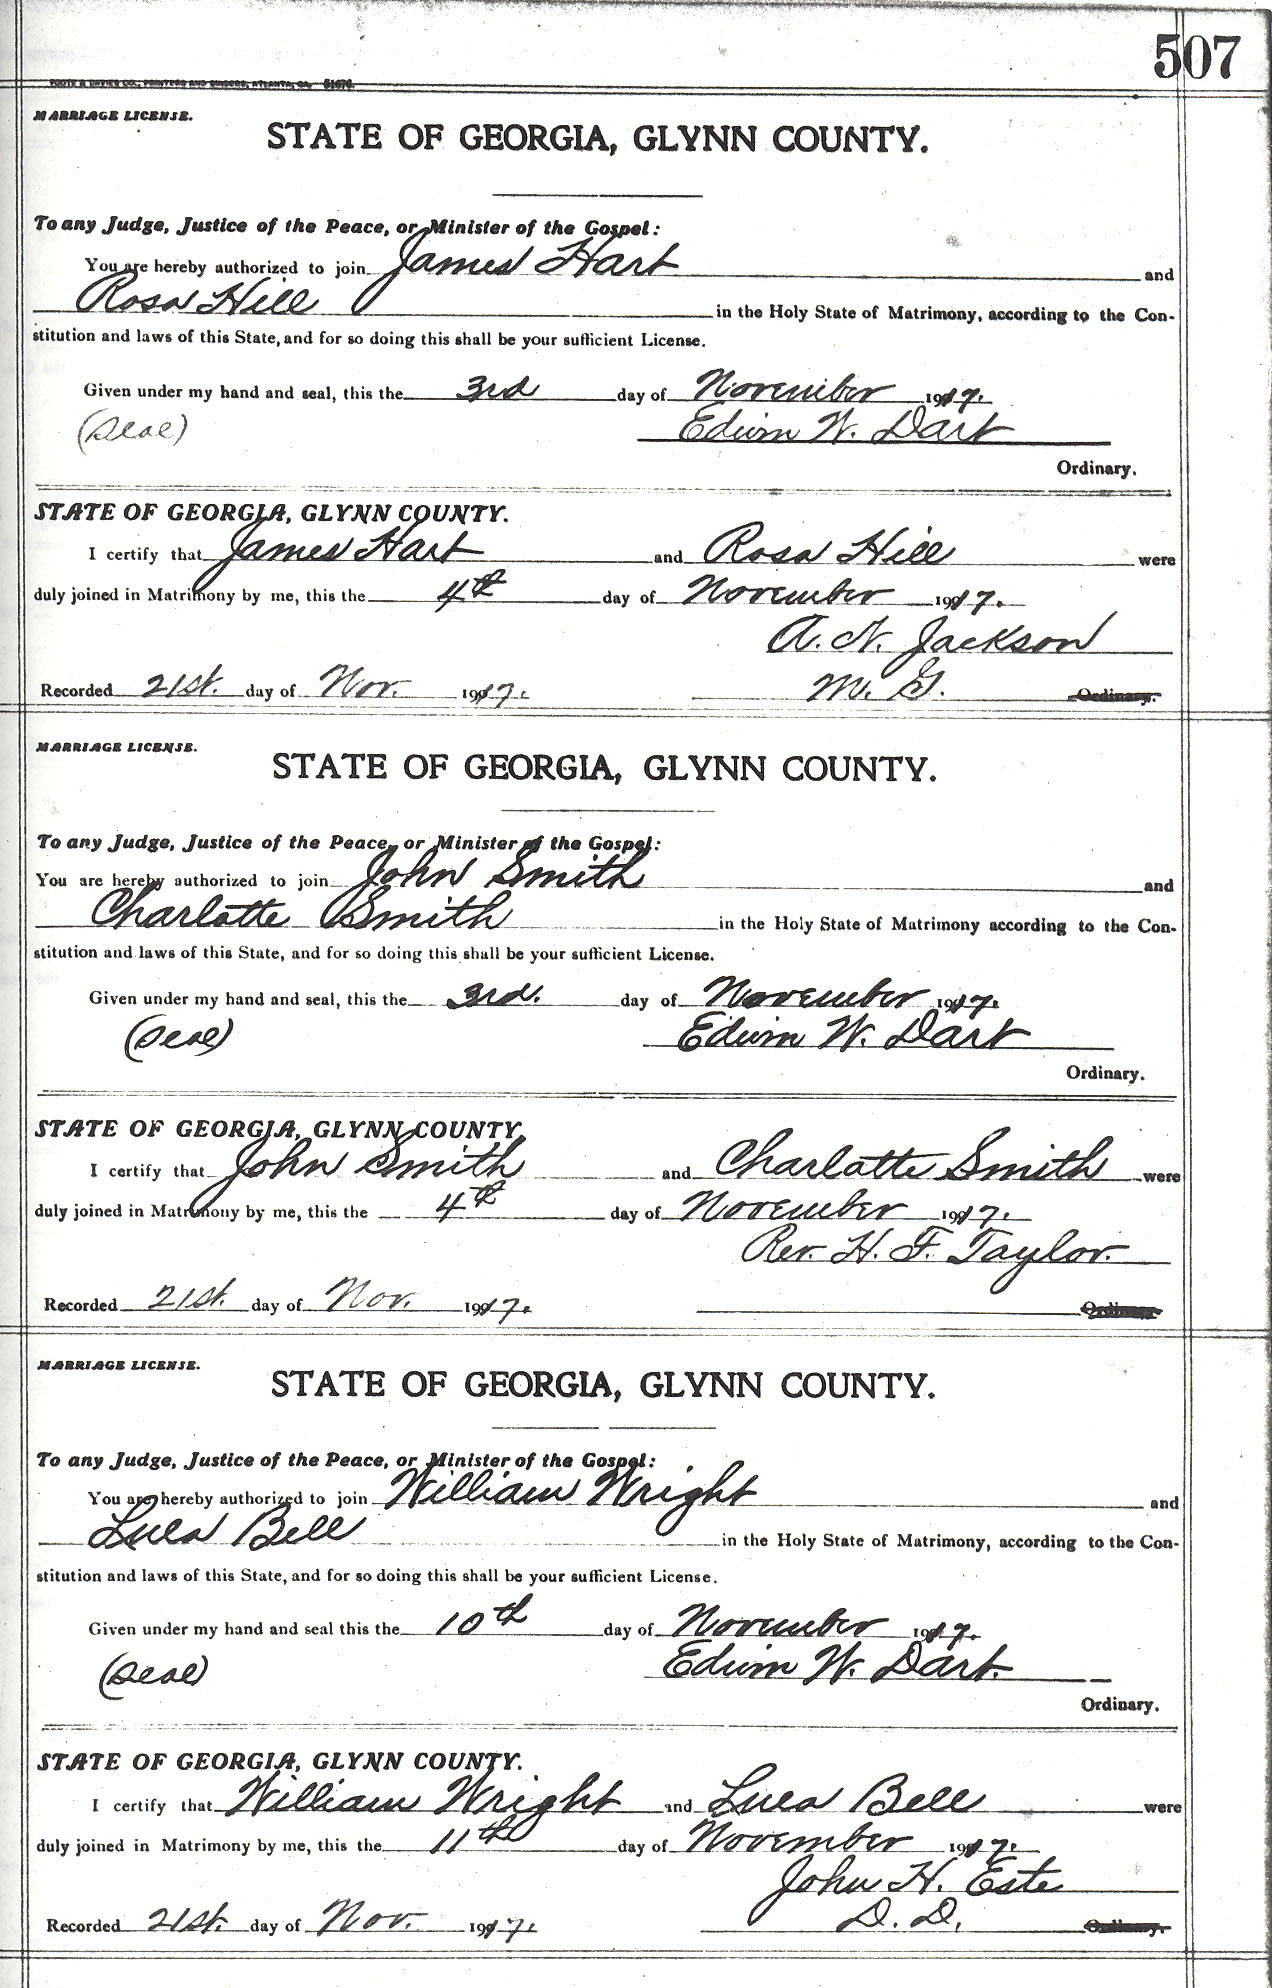 507
FOOTE & DAVIES CO., PRINTERS AND BINDERS, ATLANTA, GA.
MARRIAGE LICENSE.
STATE OF GEORGIA, GLYNN COUNTY.
To any Judge, Justice of the Peace, or Minister of the Gospel:
You are hereby authorized to join James Hart and
Rosa Hill in the Holy State of Matrimony, according to the Con-
stitution and laws of this State, and for so doing this shall be your sufficient License.
Given under my hand and seal, this the 3rd day of November 1917.
(Seal) Edwin W. Dart
Ordinary.
STATE OF GEORGIA, GLYNN COUNTY.
I certify that James Hart and Rosa Hill were
duly joined in Matrimony by me, this the 4th day of November 1917.
A. N. Jackson
Recorded 21st. day of Nov. 1917. M. G. Ordinary.
MARRIAGE LICENSE.
STATE OF GEORGIA, GLYNN COUNTY.
To any Judge, Justice of the Peace, or Minister of the Gospel:
You are hereby authorized to join John Smith and
Charlotte Smith in the Holy State of Matrimony according to the Con-
stitution and laws of this State, and for so doing this shall be your sufficient License.
Given under my hand and seal, this the 3rd. day of November 1917.
(Seal) Edwin W. Dart
Ordinary.
STATE OF GEORGIA, GLYNN COUNTY.
I certify that John Smith and Charlotte Smith were
duly joined in Matrimony by me, this the 4th day of November 1917.
Rev. H. F. Taylor.
Recorded 21st. day of Nov. 1917. Ordinary.
MARRIAGE LICENSE.
STATE OF GEORGIA, GLYNN COUNTY.
To any Judge, Justice of the Peace, or Minister of the Gospel:
You are hereby authorized to join William Wright and
Lula Bell in the Holy State of Matrimony, according to the Con-
stitution and laws of this State, and for so doing this shall be your sufficient License.
Given under my hand and seal this the 10th day of November 1917.
(Seal) Edwin W. Dart.
Ordinary.
STATE OF GEORGIA, GLYNN COUNTY.
I certify that William Wright and Lula Bell were
duly joined in Matrimony by me, this the 11th day of November 1917.
John H. Este
Recorded 21st. day of Nov. 1917. D. D. Ordinary.